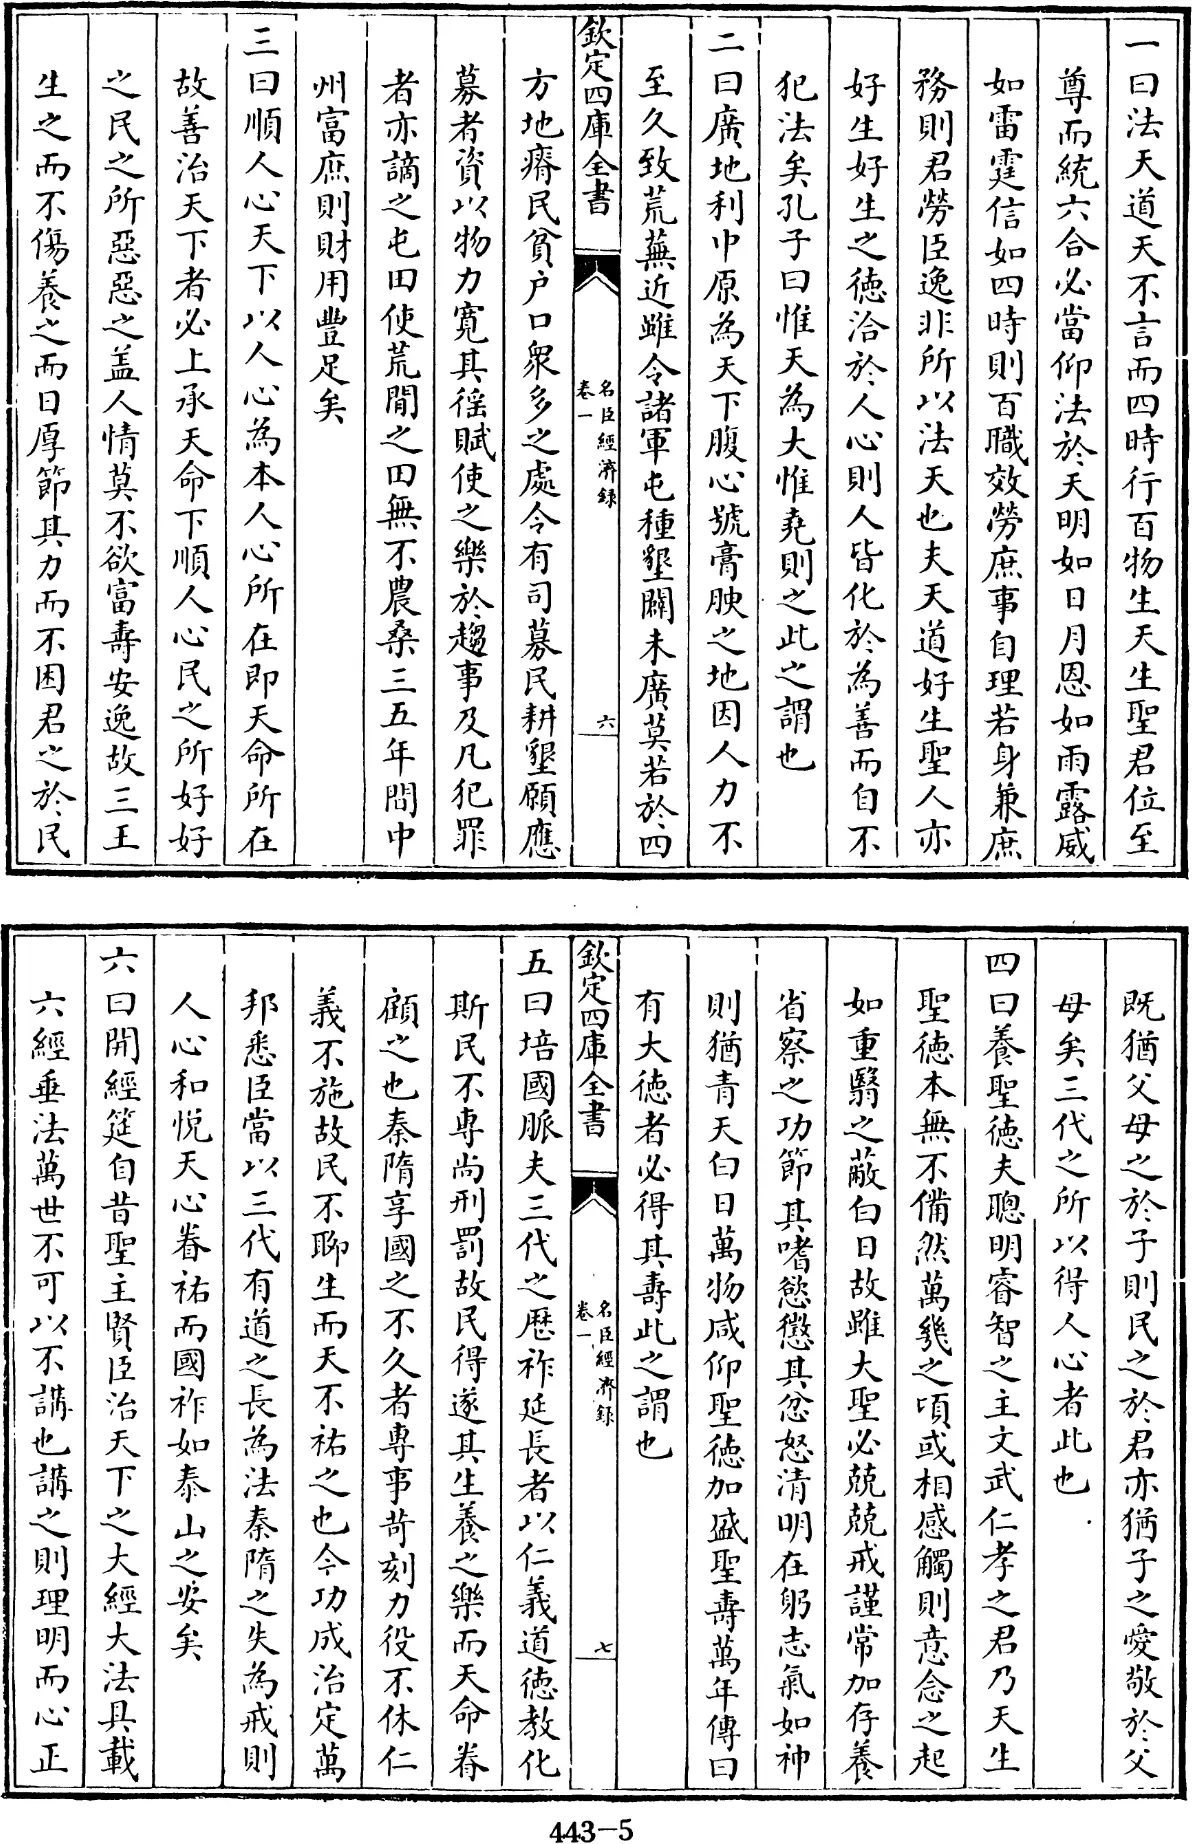 一曰法天道天不言而四時行百物生天生聖君位至
尊而統六合必當仰法於天明如日月恩如雨露威
如雷霆信如四時則百職效勞庶事自理若身兼庶
務則君勞臣逸非所以法天也夫天道好生聖人亦
好生好生之徳洽於人心則人皆化於為善而自不
犯法矣孔子曰惟天為大惟堯則之此之謂也
二曰廣地利中原為天下腹心號膏腴之地因人力不
至久致荒蕪近雖令諸軍屯種墾闢未廣莫若於四
欽定四庫全書
名臣經濟録
卷一
六
方地瘠民貧户口衆多之處令有司募民耕墾願應
募者資以物力寛其徭賦使之樂於趨事及凡犯罪
者亦謫之屯田使荒閒之田無不農桑三五年間中
州富庶則財用豐足矣
三曰順人心天下以人心為本人心所在即天命所在
故善治天下者必上承天命下順人心民之所好好
之民之所惡惡之盖人情莫不欲富壽安逸故三王
生之而不傷養之而日厚節其力而不困君之於民
既猶父母之於子則民之於君亦猶子之愛敬於父
母矣三代之所以得人心者此也
四曰養聖徳夫聰明睿智之主文武仁孝之君乃天生
聖徳本無不備然萬幾之頃或相感觸則意念之起
如重翳之蔽白日故雖大聖必兢兢戒謹常加存養
省察之功節其嗜慾懲其忿怒清明在躬志氣如神
則猶青天白日萬物咸仰聖徳加盛聖壽萬年傳曰
有大徳者必得其壽此之謂也
欽定四庫全書
名臣經濟録
卷一
七
五曰培國脈夫三代之歴祚延長者以仁義道徳教化
斯民不専尚刑罰故民得遂其生養之樂而天命眷
顧之也秦隋享國之不久者専事苛刻力役不休仁
義不施故民不聊生而天不祐之也今功成治定萬
邦悉臣當以三代有道之長為法秦隋之失為戒則
人心和悦天心眷祐而國祚如泰山之安矣
六曰開經筵自昔聖主賢臣治天下之大經大法具載
六經垂法萬世不可以不講也講之則理明而心正
443-5